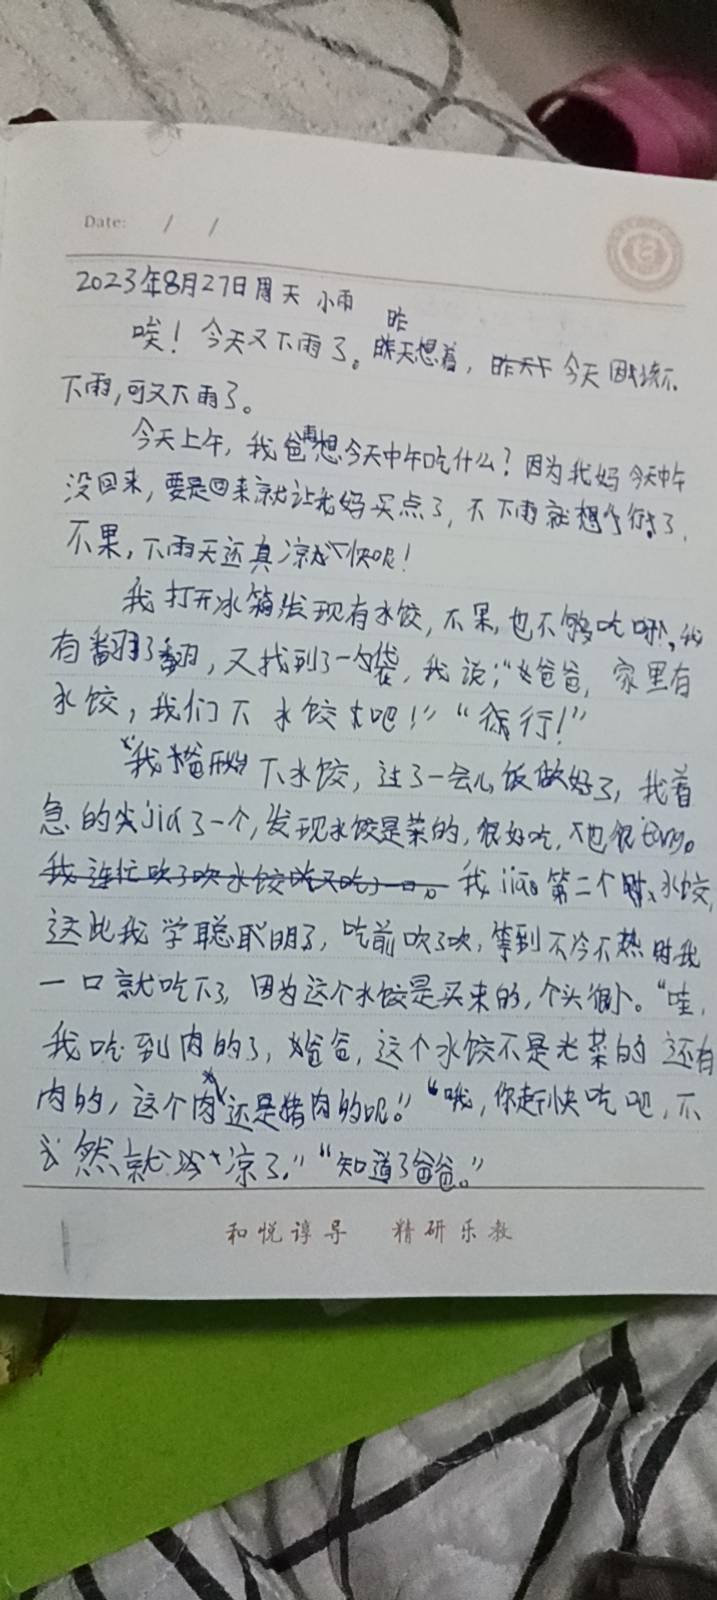 Date: / /
2023年8月27日周天 小雨 昨
唉！今天又下雨了。昨天想着，今天因该不
下雨，可又下雨了。
今天上午，我爸再想今天中午吃什么？因为我妈今天中午
没回来，要是回来就让我妈买点了，不下雨就想
不果，下雨天还真凉快呢！
我打开冰箱发现有水饺，不果，也不够吃啊，我
有翻了翻，又找到了一袋，我说：“爸爸，家里有
水饺，我们下水饺吧！” “行！”
我爸开始下水饺，过了一会儿饭做好了，我着
急的jia了一个，发现水饺是菜的，很好吃，也很
我连忙吹了吹水饺又吃了一口。我jia第二个水饺，
这此我学聪明了，吃前吹了吹，等到不冷不热时我
一口就吃下了，因为这个水饺是买来的，个头很小。“哇，
我吃到肉的了，爸爸，这个水饺不是光菜的还有
肉的，这个肉还是猪肉的呢。” “哦，你赶快吃吧，不
然就凉了。” “知道了爸爸。”
和悦谆导 精研乐教